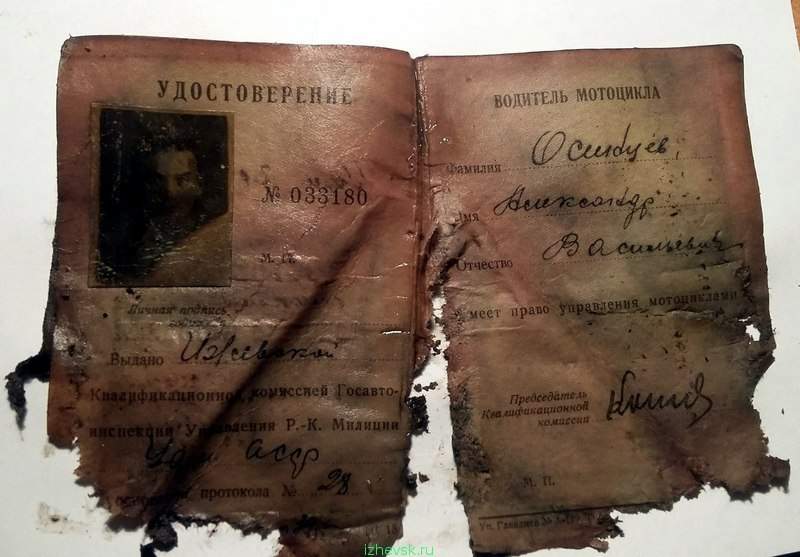 УДОСТОВЕРЕНИЕ
№ 033180
М. П.
Личная подпись
Выдано Ижевской
Квалификационной комиссией Госавто-
инспекции Управления Р.-К. Милиции
Удм АССР
протокола № 28
ВОДИТЕЛЬ МОТОЦИКЛА
Фамилия Осинцев
Имя Александр
Отчество Васильевич
имеет право управления мотоциклами
Председатель
Квалификационной
комиссии
М. П.
izhevsk.ru